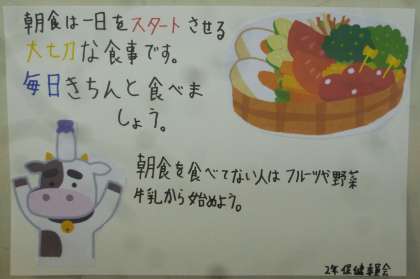 朝食は一日をスタートさせる
大切な食事です。
毎日きちんと食べま
しょう。
朝食を食べてない人はフルーツや野菜
牛乳から始めよう。
2年保健委員会